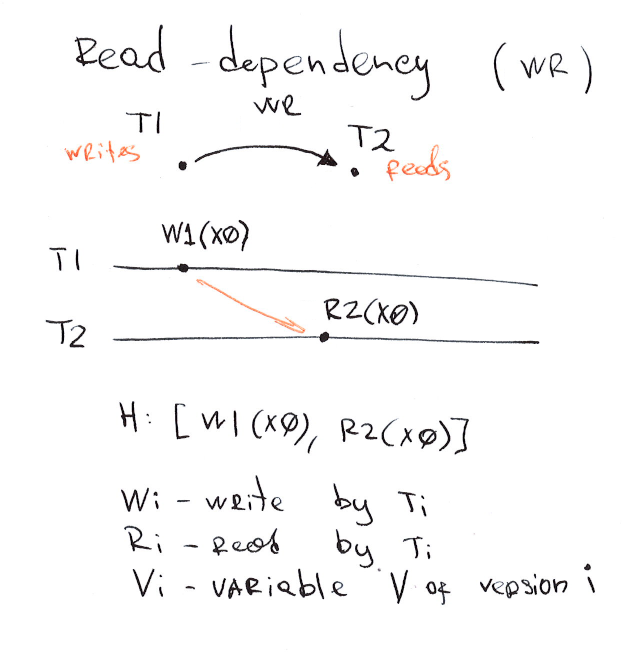 Read - dependency (WR)
WR
T1 T2
writes reads
W1(XØ)
T1
R2(XØ)
T2
H: [W1(XØ), R2(XØ)]
Wi - write by Ti
Ri - Read by Ti
Vi - VARiable V of version i